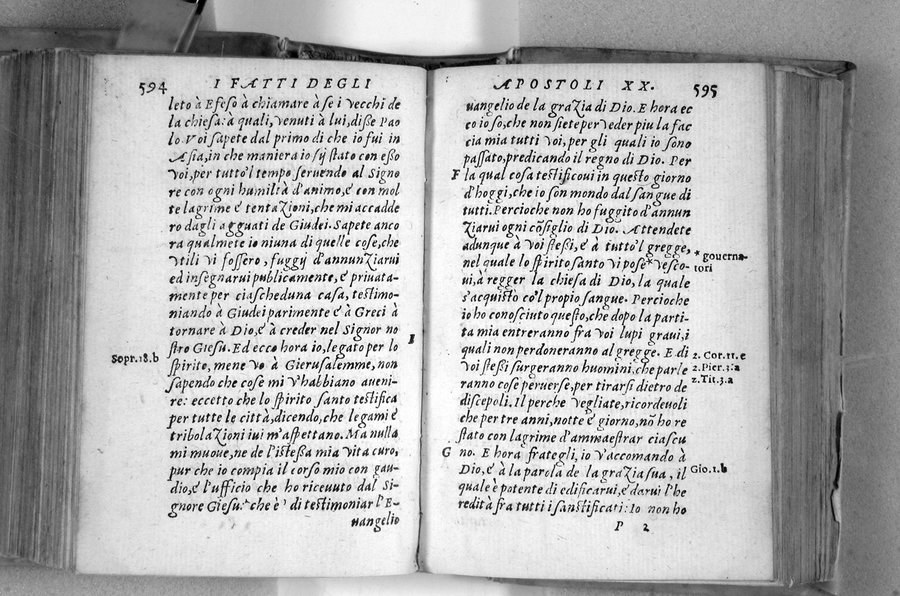 594 I FATTI DEGLI
leto à Efeso à chiamare à se i vecchi de
la chiesa: à quali, venuti à lui, disse Pao
lo Voi sapete dal primo dì che io fui in
Asia, in che maniera io sij stato con esso
voi, per tutto'l tempo seruendo al Signo
re con ogni humiltà d'animo, e con mol
te lagrime e tentazioni, che mi accadde
ro dagli agguati de Giudei. Sapete anco
ra qualmẽte io niuna di quelle cose, che
vtili vi fossero, fuggij d'annunziarui
ed insegnarui publicamente, e priuata-
mente per ciascheduna casa, testimo-
niando à Giudei parimente e à Greci à
tornare à Dio, e à creder nel Signor no
stro Giesu. Ed ecco hora io, legato per lo
Sopr. 18. b
spirito, mene vo à Gierusalemme, non
sapendo che cose mi v'habbiano aueni-
re: eccetto che lo spirito santo testifica
per tutte le città, dicendo, che legami e
tribolazioni iui m'aspettano. Ma nulla
mi muoue, ne de l'istessa mia vita curo,
pur che io compia il corso mio con gau-
dio, e l'ufficio che ho riceuuto dal Si-
gnore Giesu: che è di testimoniar l'E-
uangelio
APOSTOLI XX. 595
uangelio de la grazia di Dio. E hora ec
co io so, che non siete per veder piu la fac
cia mia tutti voi, per gli quali io sono
passato, predicando il regno di Dio. Per
F
la qual cosa testificoui in questo giorno
d'hoggi, che io son mondo dal sangue di
tutti. Percioche non ho fuggito d'annun
ziarui ogni cõsiglio di Dio. Attendete
adunque à voi stessi, e à tutto'l gregge,
nel quale lo spirito santo vi pose * vesco-
* gouerna-
tori
ui, à regger la chiesa di Dio, la quale
s'acquistò co'l propio sangue. Percioche
io ho conosciuto questo, che dopo la parti-
ta mia entreranno fra voi lupi graui, i
quali non perdoneranno al gregge. E di
2. Cor. 11. e
voi stessi surgeranno huomini, che parle
2. Pier. 3. a
ranno cose peruerse, per tirarsi dietro de
2. Tit. 3. a
discepoli. Il perche vegliate, ricordeuoli
che per tre anni, notte e giorno, nõ ho re
stato con lagrime d'ammaestrar ciascu
G
no. E hora frategli, io v'accomando à
Dio, e à la parola de la grazia sua, il
Gio. 1. b
quale è potente di edificarui, e darui l'he
redità fra tutti i santificati: Io non ho
P 2